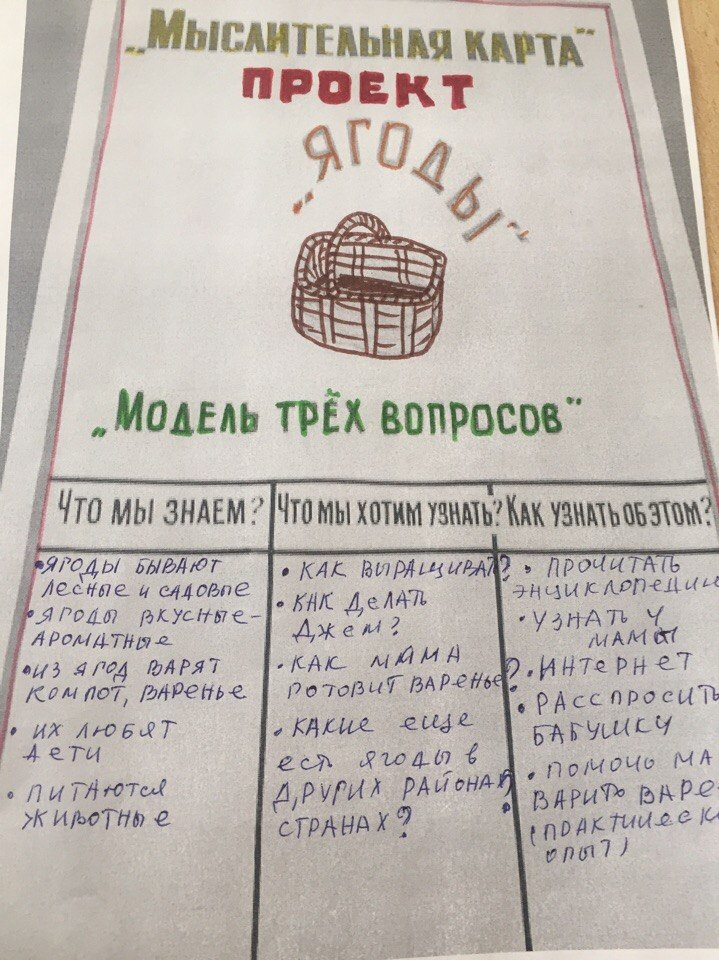 „Мыслительная карта"
ПРОЕКТ
„ЯГОДЫ"
„Модель трёх вопросов"
Что мы знаем?
• ЯГОДЫ БЫВАЮТ
ЛЕСНЫЕ И САДОВЫЕ
• ЯГОДЫ ВКУСНЫЕ-
АРОМАТНЫЕ
• ИЗ ЯГОД ВАРЯТ
КОМПОТ, ВАРЕНЬЕ
• ИХ ЛЮБЯТ
ДЕТИ
• ПИТАЮТСЯ
ЖИВОТНЫЕ
Что мы хотим узнать?
• КАК ВЫРАЩИВАТЬ?
• КАК ДЕЛАТЬ
ДЖЕМ?
• КАК МАМА
ГОТОВИТ ВАРЕНЬЕ?
• КАКИЕ ЕЩЕ
ЕСТЬ ЯГОДЫ В
ДРУГИХ РАЙОНАХ,
СТРАНАХ?
Как узнать об этом?
• ПРОЧИТАТЬ
ЭНЦИКЛОПЕДИИ
• УЗНАТЬ У
МАМЫ
• ИНТЕРНЕТ
• РАССПРОСИТЬ
БАБУШКУ
• ПОМОЧЬ МА
ВАРИТЬ ВАРЕ
(ПРАКТИЧЕСК
ОПЫТ)